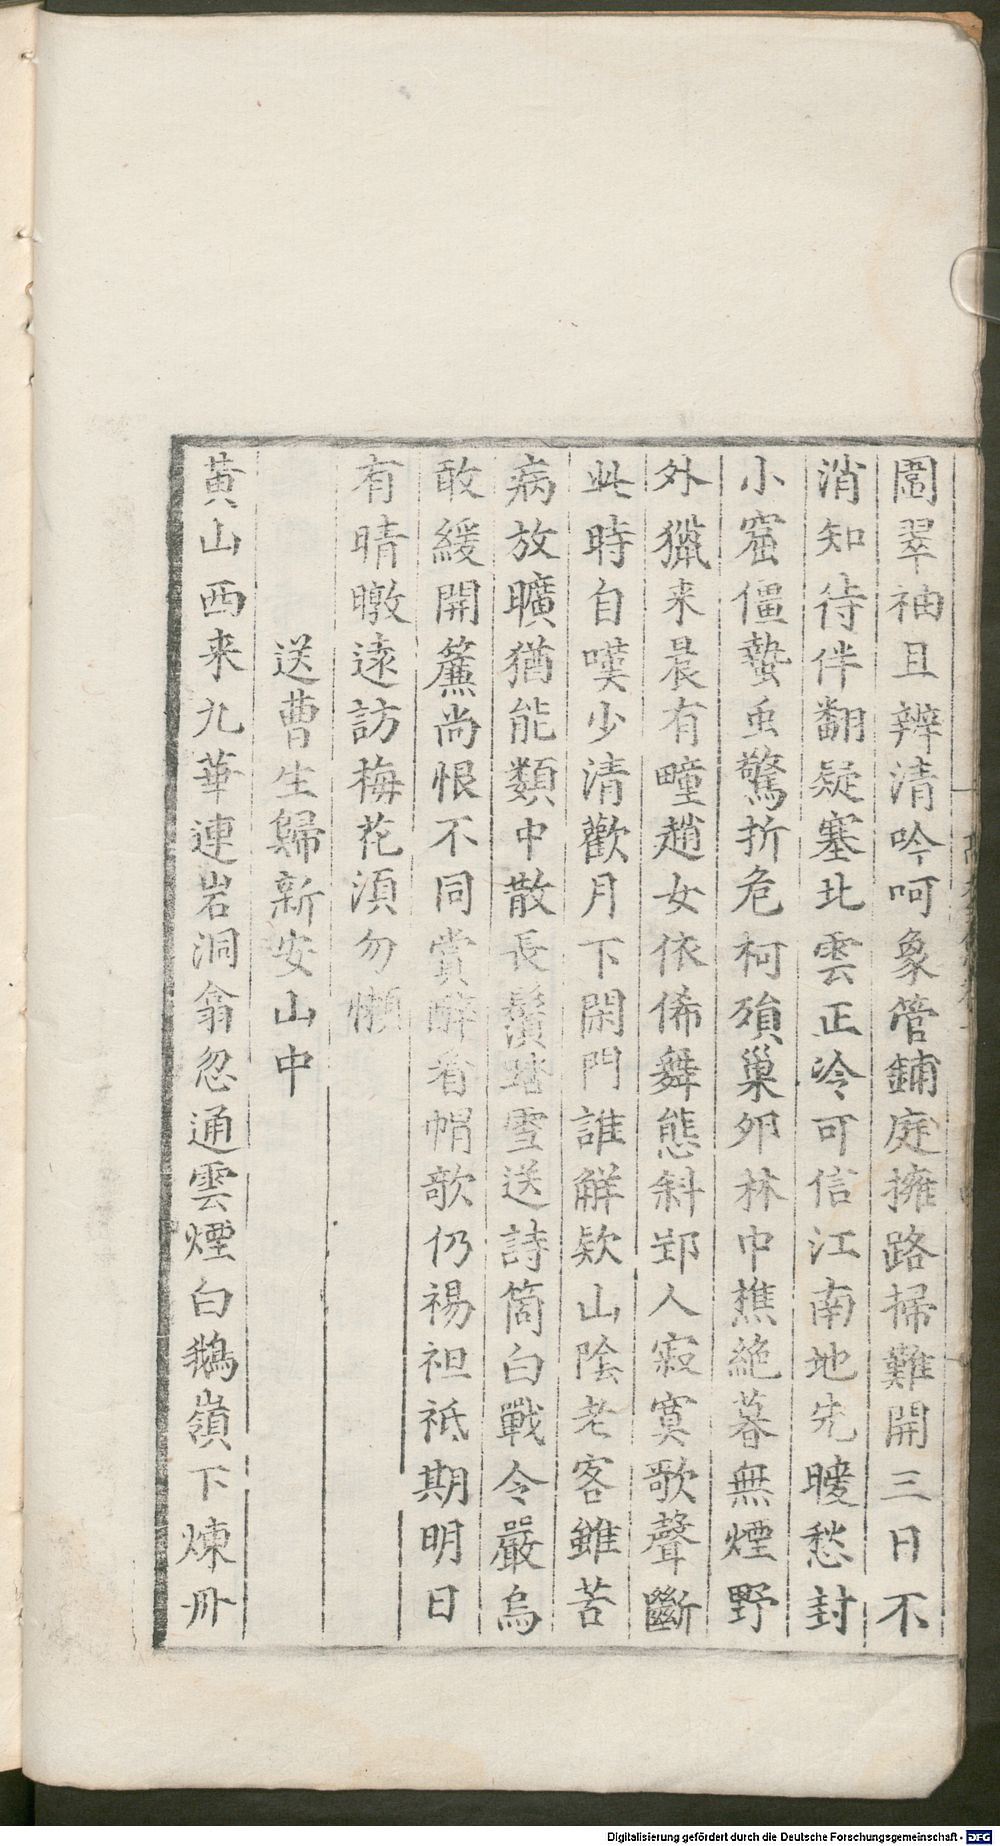 圍翠袖且辨清吟呵象管鋪庭擁路掃難開三日不
消知待伴翻疑塞北雲正冷可信江南地先暖愁封
小窟僵蟄虫驚折危柯殞巢卵林中樵絶暮無煙野
外獵来晨有疃趙女依俙舞態斜郢人寂寞歌聲斷
此時自嘆少清歡月下閑門誰觧欵山陰老客雖苦
病放曠猶能類中散長鬚踏雪送詩筒白戰令嚴烏
敢緩開簾尚恨不同賞醉看帽歌仍裼袒祗期明日
有晴暾遠訪梅花湏勿懶
送曹生歸新安山中
黃山西来九華連岩洞翕忽通雲煙白鵝嶺下煉丹
Digitalisierung gefördert durch die Deutsche Forschungsgemeinschaft - DFG